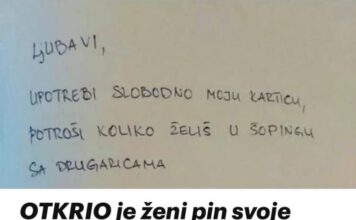 LJUBAVI,
UPOTREBI SLOBODNO MOJU KARTICU,
POTROŠI KOLIKO ŽELIŠ U ŠOPINGU
SA DRUGARICAMA
OTKRIO je ženi pin svoje